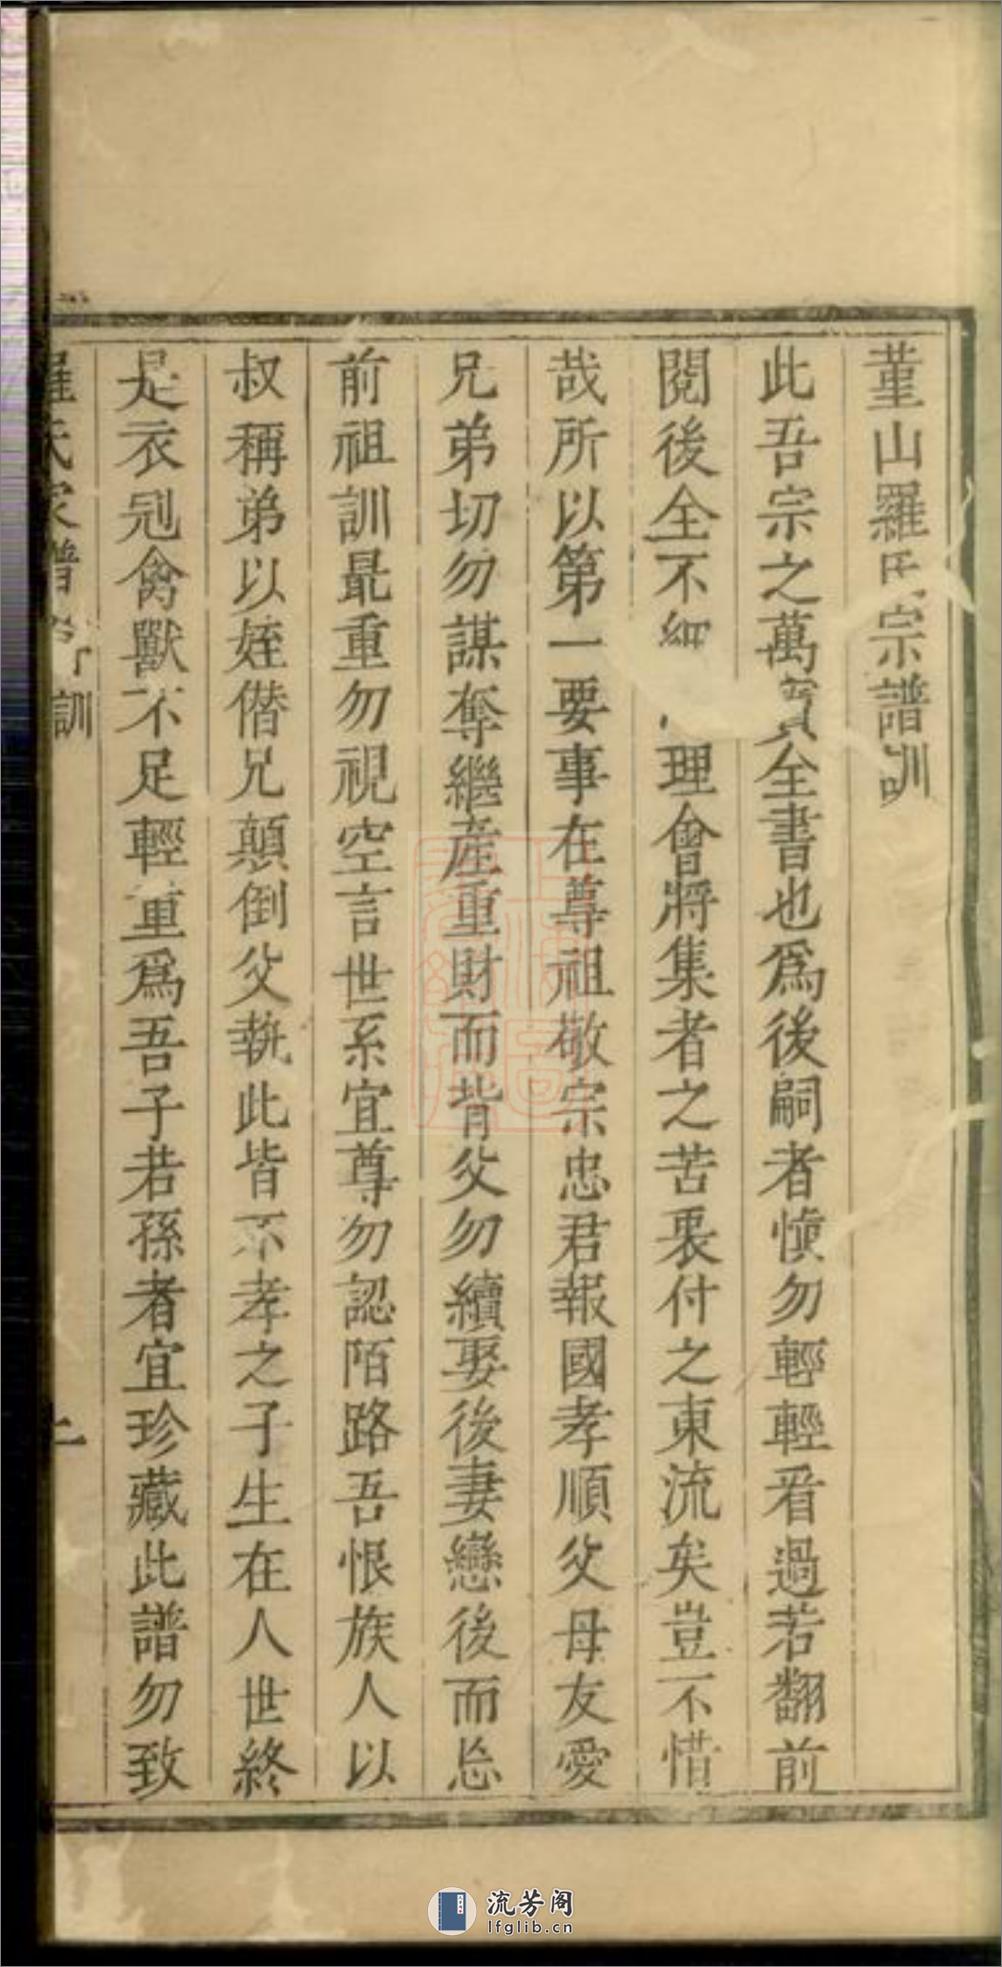 董山羅氏宗譜訓
此吾宗之萬寳全書也爲後嗣者慎勿輕輕看過若翻前
閱後全不細理會將集者之苦衷付之東流矣豈不惜
哉所以第一要事在尊祖敬宗忠君報國孝順父母友愛
兄弟切勿謀奪繼產重財而背父勿續娶後妻戀後而忘
前祖訓最重勿視空言世系宜尊勿認陌路吾恨族人以
叔稱弟以姪僭兄顛倒父執此皆不孝之子生在人世終
是衣冠禽獸不足輕重爲吾子若孫者宜珍藏此譜勿致
羅氏宗譜 訓
流芳阁
lfglib.cn